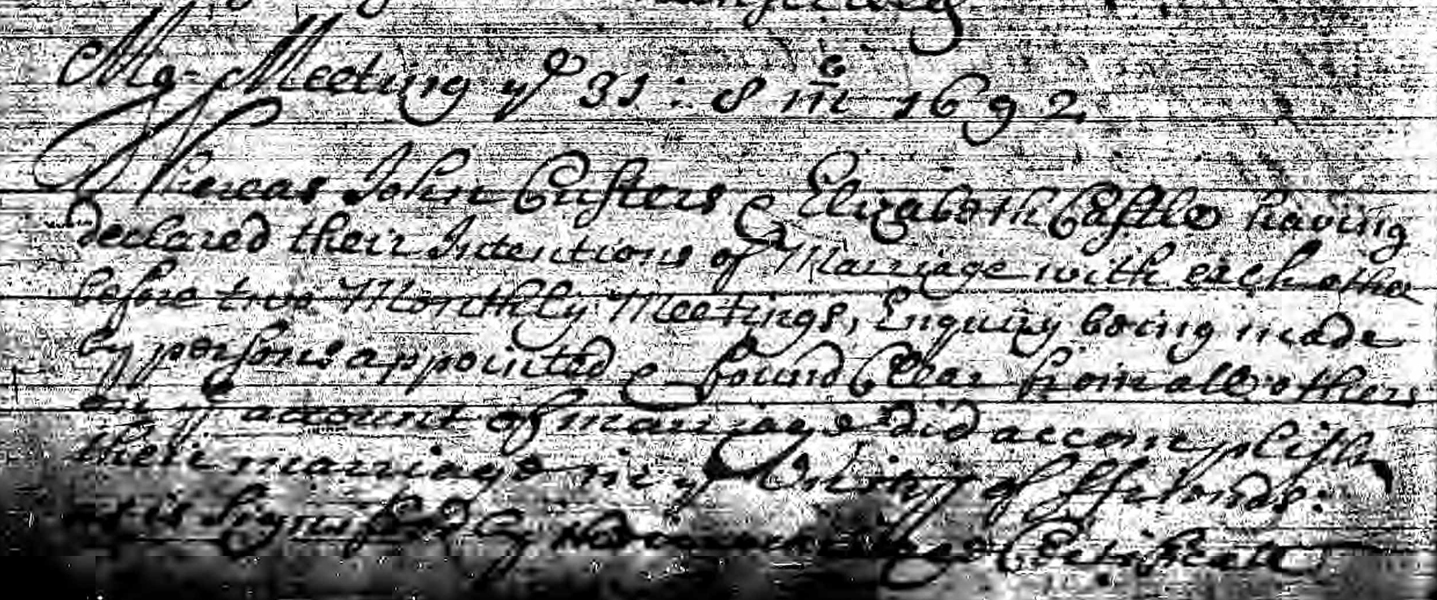 Mo: Meeting ye 31: 8 mo 1692
Whereas John Custers & Elizabeth Castle having
declared their Intentions of Marriage with each other
before two Monthly Meetings, Enquiry being made
by persons appointed & found Clear from all others
on ye account of marriage did accomplish
their marriage in ye Unity of ffriends:
as is Signified by their marriage Certificate